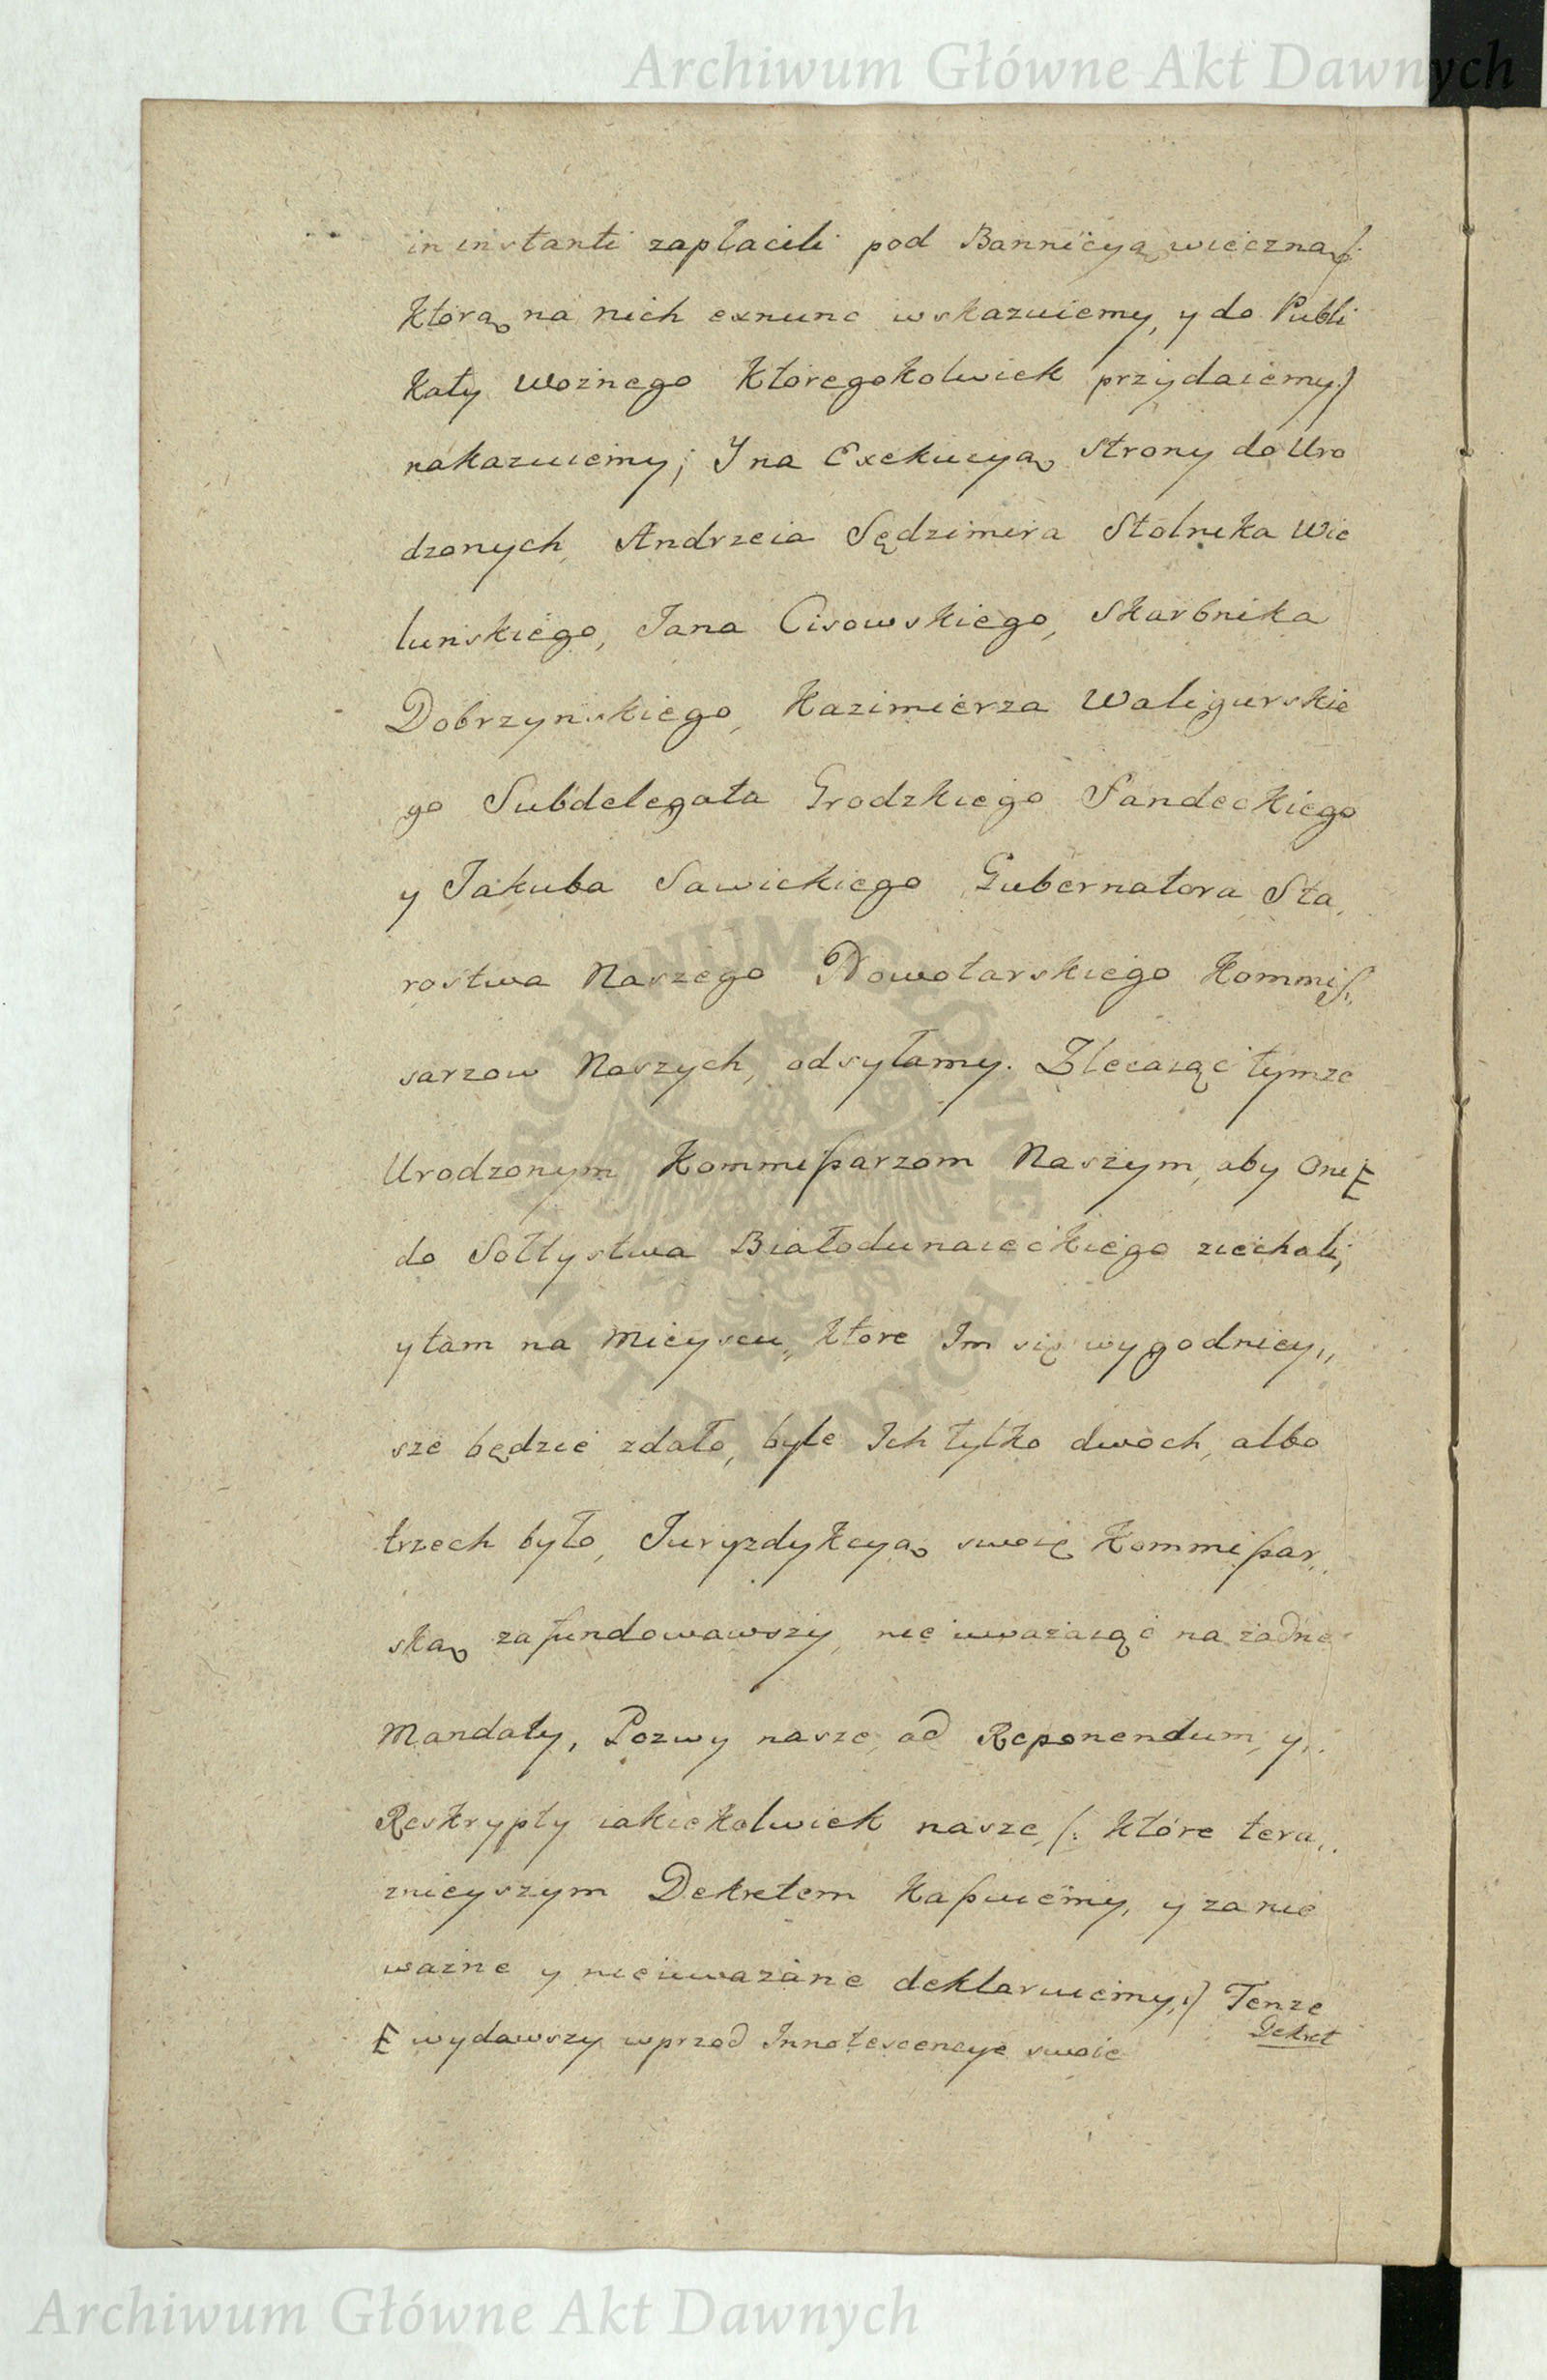 Archiwum Główne Akt Dawnych
in instanti zapłacili pod Bannicyą wieczną /:
Którą na nich exnunc wskazuiemy, y do Publi
Katy Woznego Ktoregokolwiek przydaiemy :/
nakazuiemy; Y na Exekucyą Strony do Uro
dzonych Andrzeia Sędzimira Stolnika Wie
lunskiego, Jana Cisowskiego, Skarbnika
Dobrzynskiego, Kazimierza Waligurskie
go Subdelegata Grodzkiego Sandeckiego
y Jakuba Sawickiego Gubernatora Sta,
rostwa Naszego Nowotarskiego Kommis,,
sarzow Naszych, odsyłamy. Zlecaiąc tymze
Urodzonym Kommißarzom Naszym, aby Oni E
do Sołtystwa Białodunaieckiego ziechali,
y tam na Mieyscu, Ktore Im się wygodniey,,
sze będzie zdało, byle Ich tylko dwoch, albo
trzech było, Juryzdykcyą swoię Kommißar,,
ską zafundowawszy, nie uważaiąc na żadne
Mandaty, Pozwy nasze, ad Reponendum, y,,
Reskrypty iakiekolwiek nasze, /: które tera,,
znieyszym Dekretem Kaßuiemy, y za nie
ważne y nieuważane deklaruiemy, :/ Tenze
Dekret
E wydawszy wprzod Innotescencye swoie
ARCHIWUM GŁÓWNE AKT DAWNYCH
Archiwum Główne Akt Dawnych